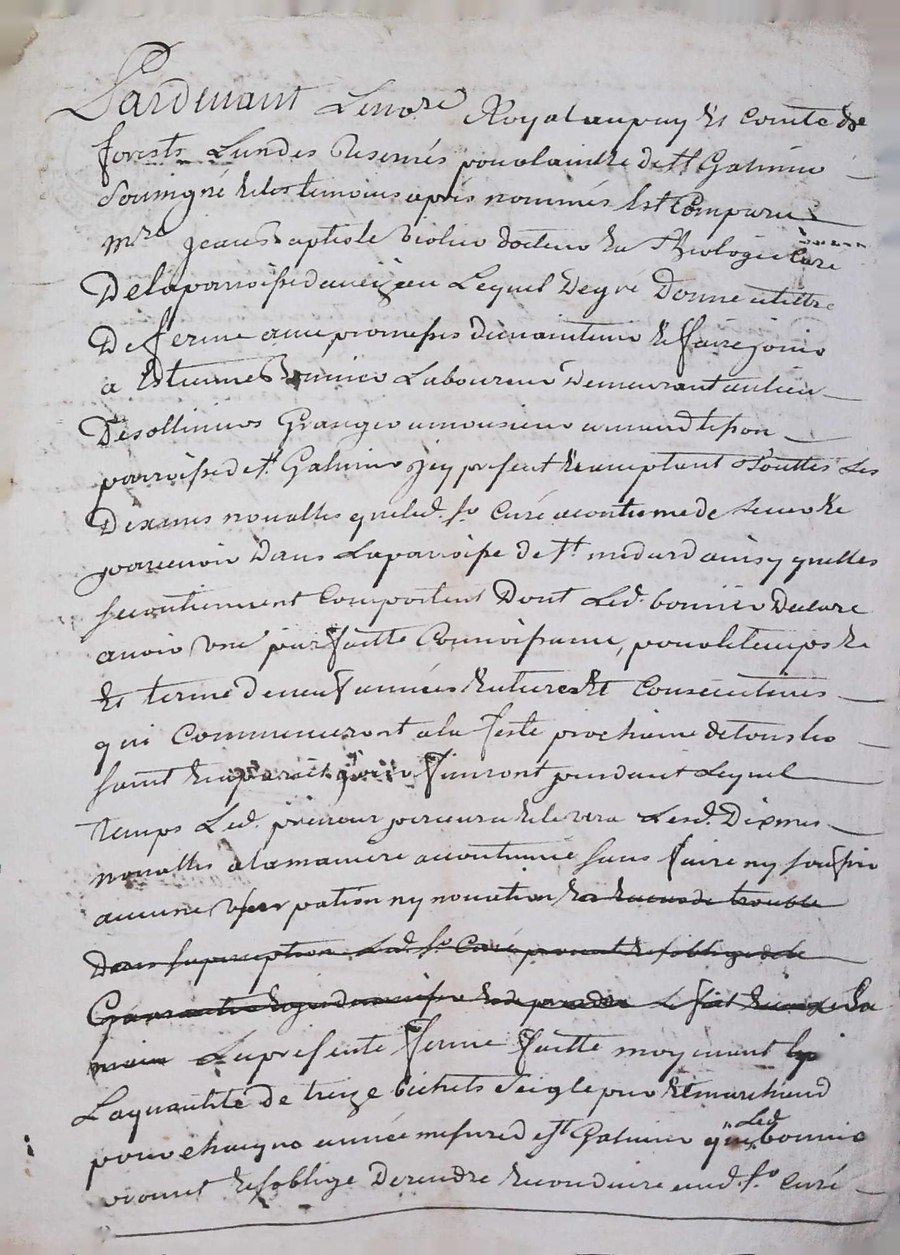 Pardevant Le no.re Royal au pay et comté de
forests L'un des reservés pour la ville de st Galmier
soussigné et les temoins après nommés est comparu
mre jean Baptiste violier docteur en Theologie Curé
De la paroisse daveizieu Lequel De gré Donne a tiltre
De ferme avec promesses de maintenir et faire jouir
a Estienne Bonnier Laboureur Demeurant au lieu
Des ollinieres Granger a monsieur
parroisse de st Galmier icy present et acceptant toutes Les
Dixmes novalles que led. sr Curé a coutume de lever et
percevoir Dans La paroisse de st medard ainsy quelles
se contiennent et comportent Dont Led. bonnier Declare
avoir une parfaitte Connoissance, pour le temps et
et terme de neuf années entieres et Consecutives
qui Commenceront a la feste prochaine de tous les
saint et a pareil jour finiront pendant Lequel
temps Led. preneur percevra et levera Lesd. Dixmes
novalles a la maniere accoutumée sans faire ny souffrir
aucune usurpation ny novation et en cas de trouble
Dans sa perception Led. sr Curé promet et s'oblige de le
Garantir et de prendre Le fait et cause en
main La presente ferme faitte moyennant
La quantité de treize bichets seigle pur et marchand
pour chaque année mesure de st Galmier que Led. bonnier
promet et s'oblige De rendre et conduire aud. sr Curé